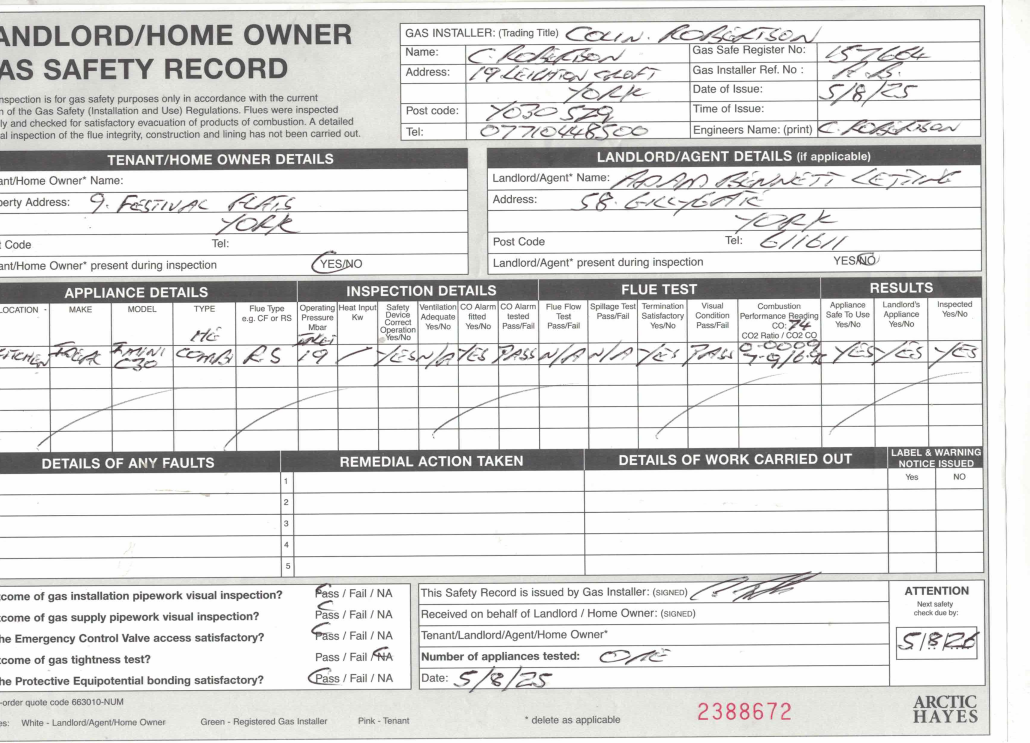 ANDLORD/HOME OWNER
AS SAFETY RECORD
nspection is for gas safety purposes only in accordance with the current
n of the Gas Safety (Installation and Use) Regulations. Flues were inspected
ly and checked for satisfactory evacuation of products of combustion. A detailed
al inspection of the flue integrity, construction and lining has not been carried out.
GAS INSTALLER: (Trading Title) COLIN. ROBERTSON
Name: C. ROBERTSON
Gas Safe Register No: 157664
Address: 19 LEIGHTON CROFT
Gas Installer Ref. No :
YORK
Date of Issue: 5/8/25
Post code: YO30
Time of Issue:
Tel: 07710448500
Engineers Name: (print) C. ROBERTSON
TENANT/HOME OWNER DETAILS
ant/Home Owner* Name:
perty Address: 9. FESTIVAL FLATS
YORK
t Code Tel:
ant/Home Owner* present during inspection YES/NO
LANDLORD/AGENT DETAILS (if applicable)
Landlord/Agent* Name: ADAM BENNETT LETTING
Address: 58. GILLYGATE
YORK
Post Code Tel: 611611
Landlord/Agent* present during inspection YES/NO
APPLIANCE DETAILS INSPECTION DETAILS FLUE TEST RESULTS
LOCATION MAKE MODEL TYPE Flue Type e.g. CF or RS Operating Pressure Mbar Heat Input Kw Safety Device Correct Operation Yes/No Ventilation Adequate Yes/No CO Alarm fitted Yes/No CO Alarm tested Pass/Fail Flue Flow Test Pass/Fail Spillage Test Pass/Fail Termination Satisfactory Yes/No Visual Condition Pass/Fail Combustion Performance Reading CO: 74 CO2 Ratio / CO2 CO Appliance Safe To Use Yes/No Landlord's Appliance Yes/No Inspected Yes/No
HE
INLET
KITCHEN IDEAL MINI C30 COMBI RS 19 / YES N/A YES PASS N/A N/A YES PASS 0-0009 YES YES YES
DETAILS OF ANY FAULTS REMEDIAL ACTION TAKEN DETAILS OF WORK CARRIED OUT LABEL & WARNING NOTICE ISSUED
Yes NO
1
2
3
4
5
tcome of gas installation pipework visual inspection? Pass / Fail / NA
tcome of gas supply pipework visual inspection? Pass / Fail / NA
he Emergency Control Valve access satisfactory? Pass / Fail / NA
tcome of gas tightness test? Pass / Fail / NA
he Protective Equipotential bonding satisfactory? Pass / Fail / NA
This Safety Record is issued by Gas Installer: (SIGNED)
Received on behalf of Landlord / Home Owner: (SIGNED)
Tenant/Landlord/Agent/Home Owner*
Number of appliances tested: ONE
Date: 5/8/25
ATTENTION
Next safety
check due by:
5/8/26
-order quote code 663010-NUM
es: White - Landlord/Agent/Home Owner Green - Registered Gas Installer Pink - Tenant
* delete as applicable
2388672
ARCTIC
HAYES